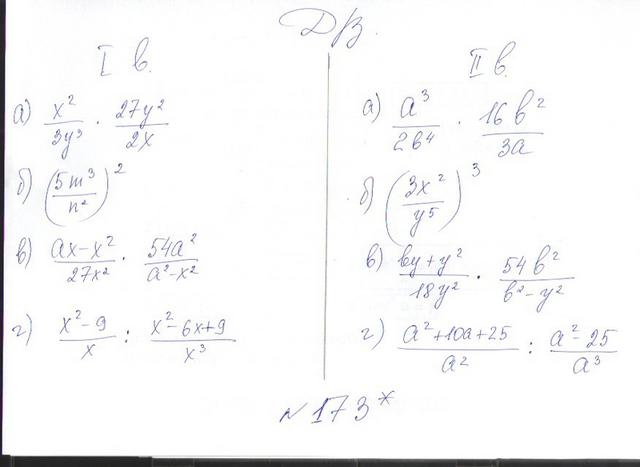 ДВ.
I в.
а) x²/3y³ · 27y²/2x
б) (5m³/n²)²
в) ax-x²/27x² · 54a²/a²-x²
г) x²-9/x : x²-6x+9/x³
II в.
а) a³/2b⁴ · 16b²/3a
б) (3x²/y⁵)³
в) by+y²/18y² · 54b²/b²-y²
г) a²+10a+25/a² : a²-25/a³
№173*